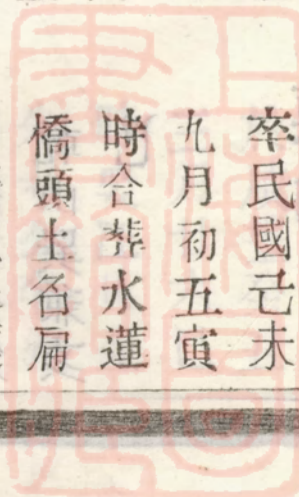 卒民國己未
九月初五寅
時合葬水蓮
橋頭土名扁